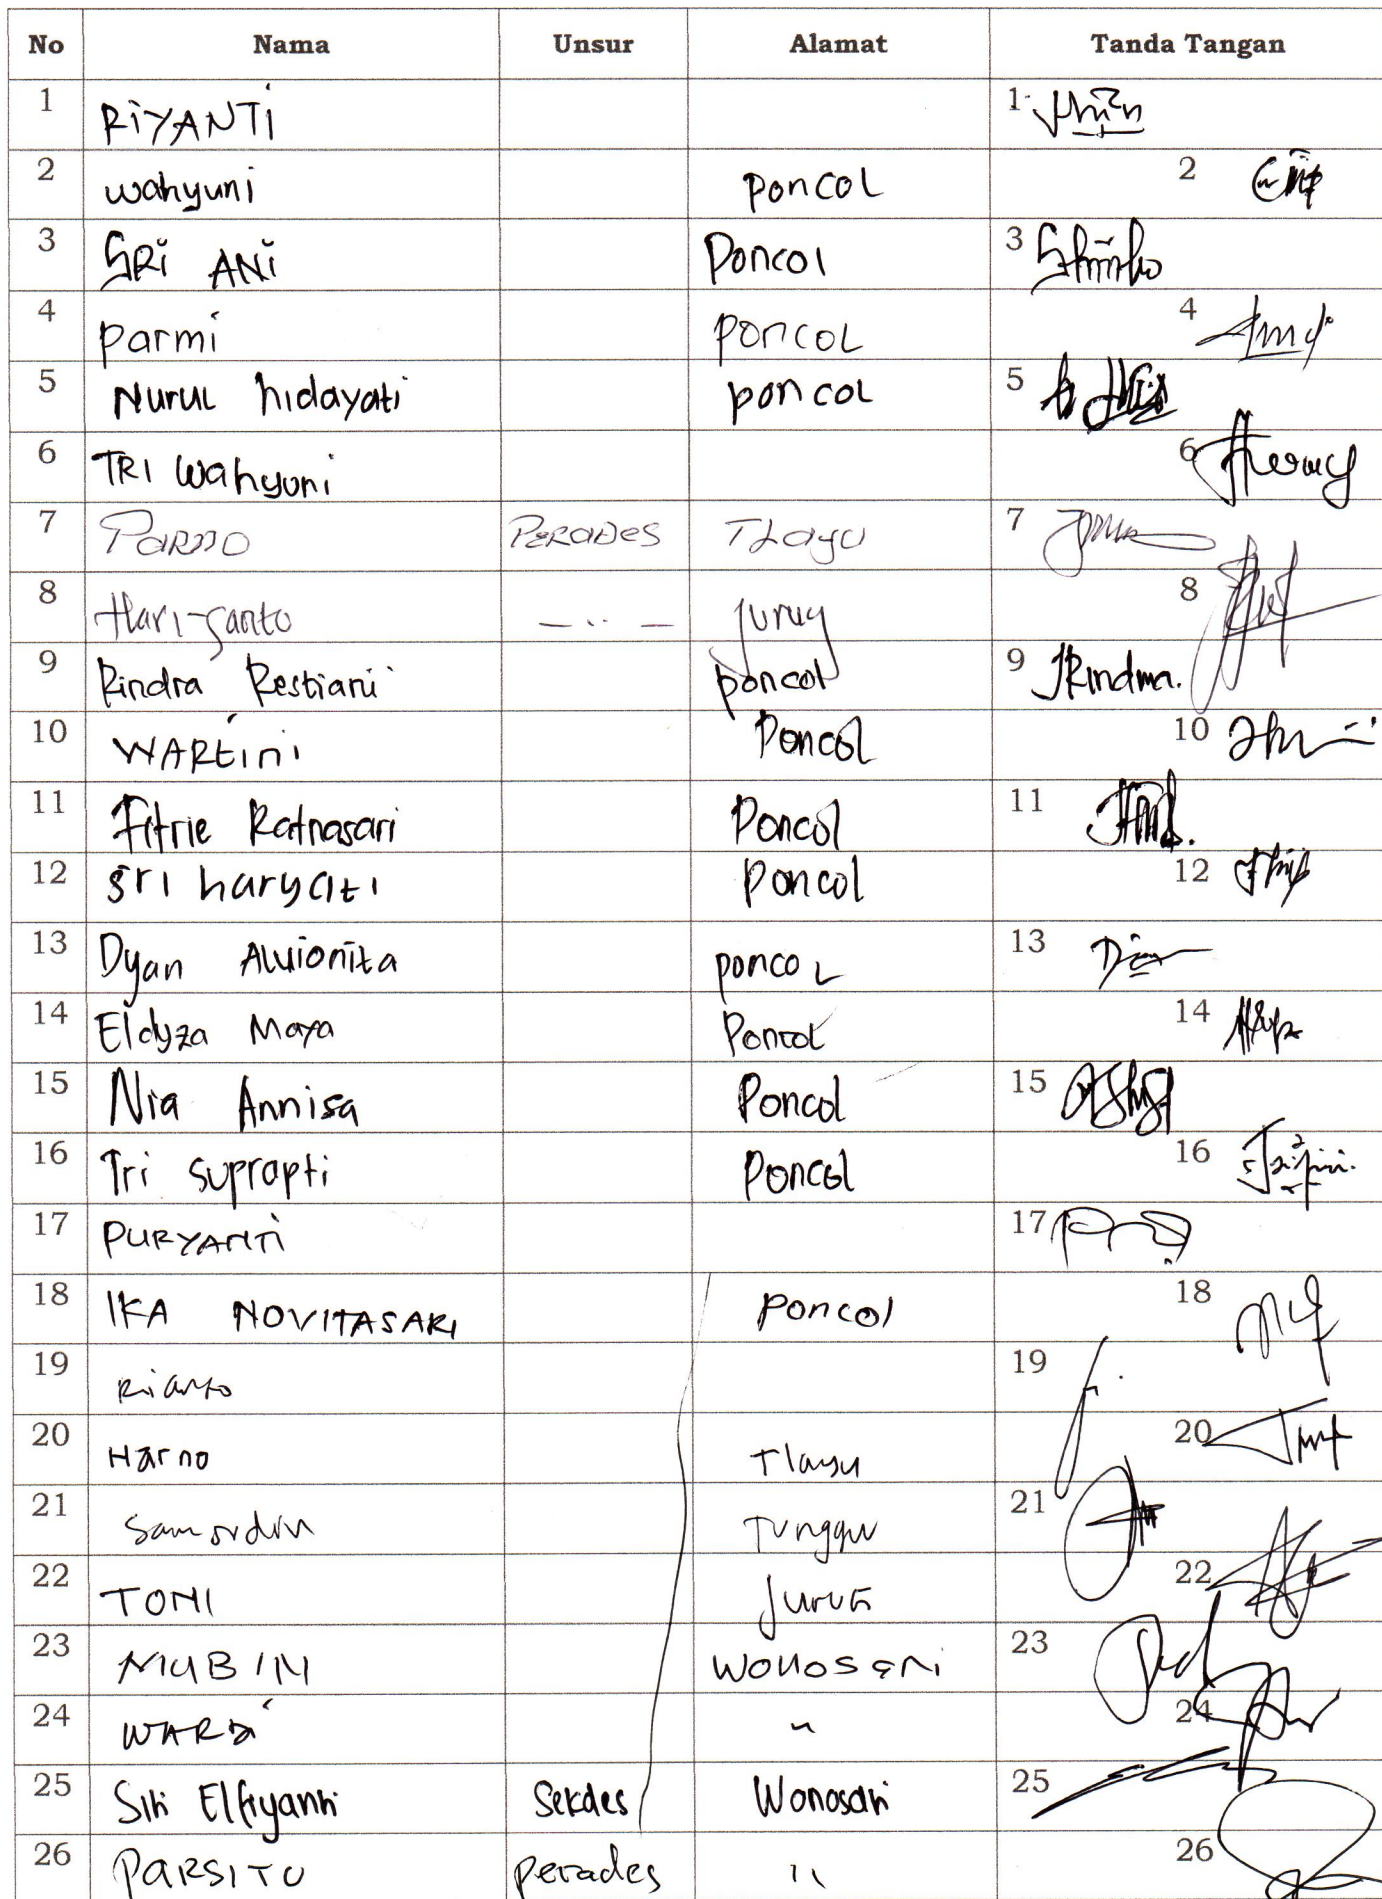 No Nama Unsur Alamat Tanda Tangan
1 RIYANTI 1
2 wahyuni Poncol 2
3 SRI ANI Poncol 3
4 parmi poncol 4
5 Nurul hidayati poncol 5
6 TRI wahyuni 6
7 PARNO PERADES TLAYU 7
8 Hari-santo - .. - Jurug 8
9 Rindra Restiani poncol 9
10 WARtini Poncol 10
11 Fitrie Ratnasari Poncol 11
12 sri haryati Poncol 12
13 Dyan Alvionita poncol 13
14 Eldyza Maya Poncol 14
15 Nia Annisa Poncol 15
16 Tri suprapti Poncol 16
17 PURYANTI 17
18 IKA NOVITASARI Poncol 18
19 Rianto 19
20 Harno Tlayu 20
21 Tunggu 21
22 TONI Juruk 22
23 MUBIN WONOSARI 23
24 WARDI " 24
25 Siti Elfiyanti Sekdes Wonosari 25
26 PARSITO perades " 26